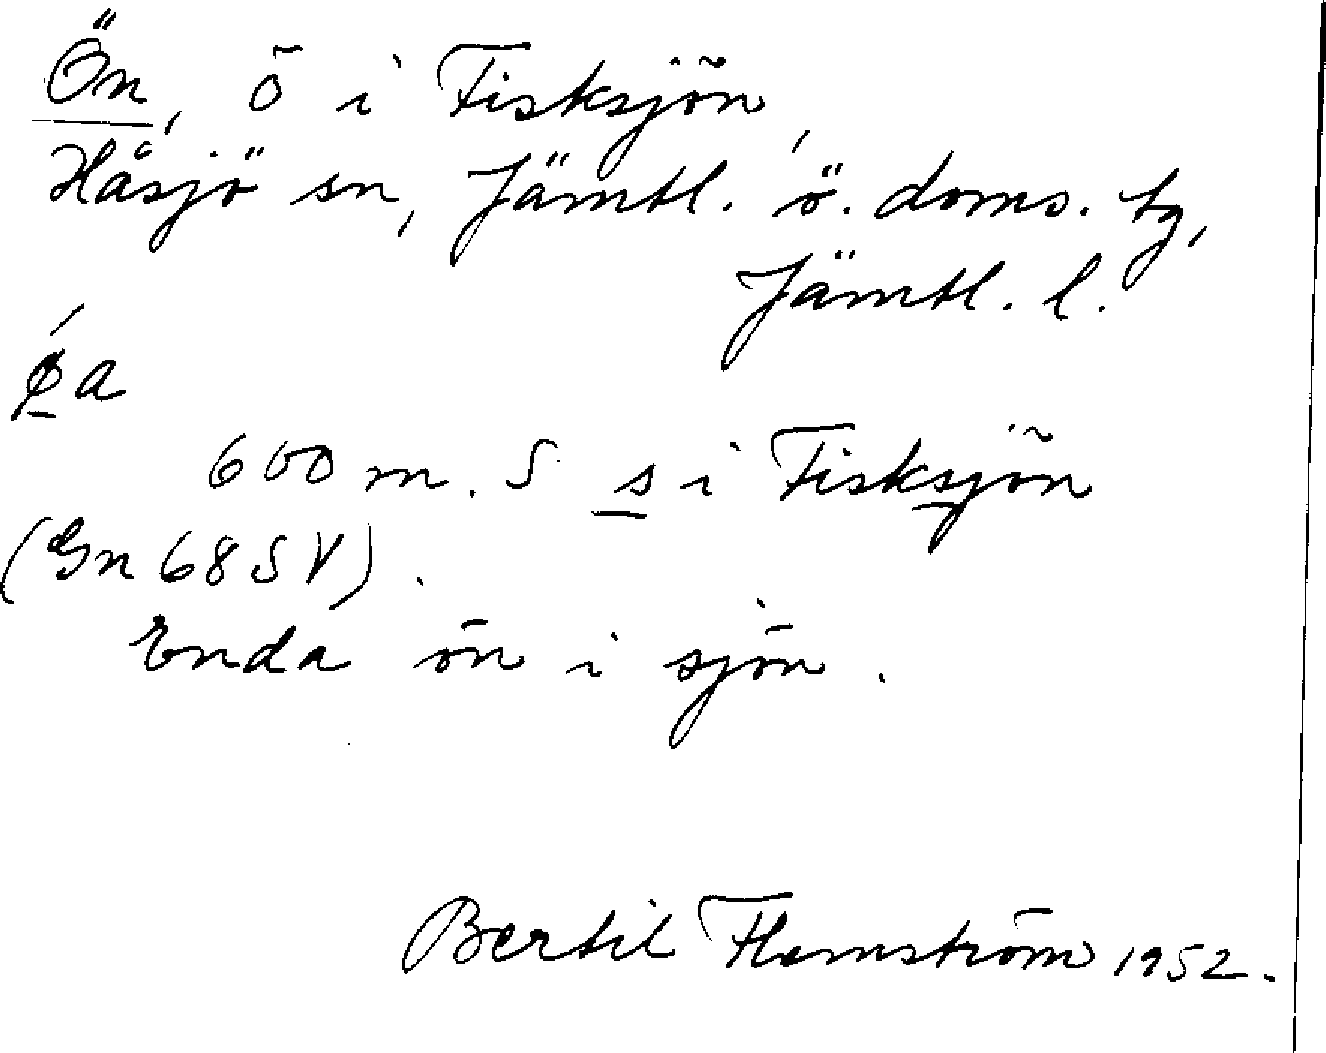 Ön, ö i Fisksjön,
Håsjö sn, Jämtl. ö. doms. tg,
Jämtl. l.
ǿa
600 m. S s i Fisksjön
(Gn 68 SV).
Enda ön i sjön.
Bertil Flemström 1952.